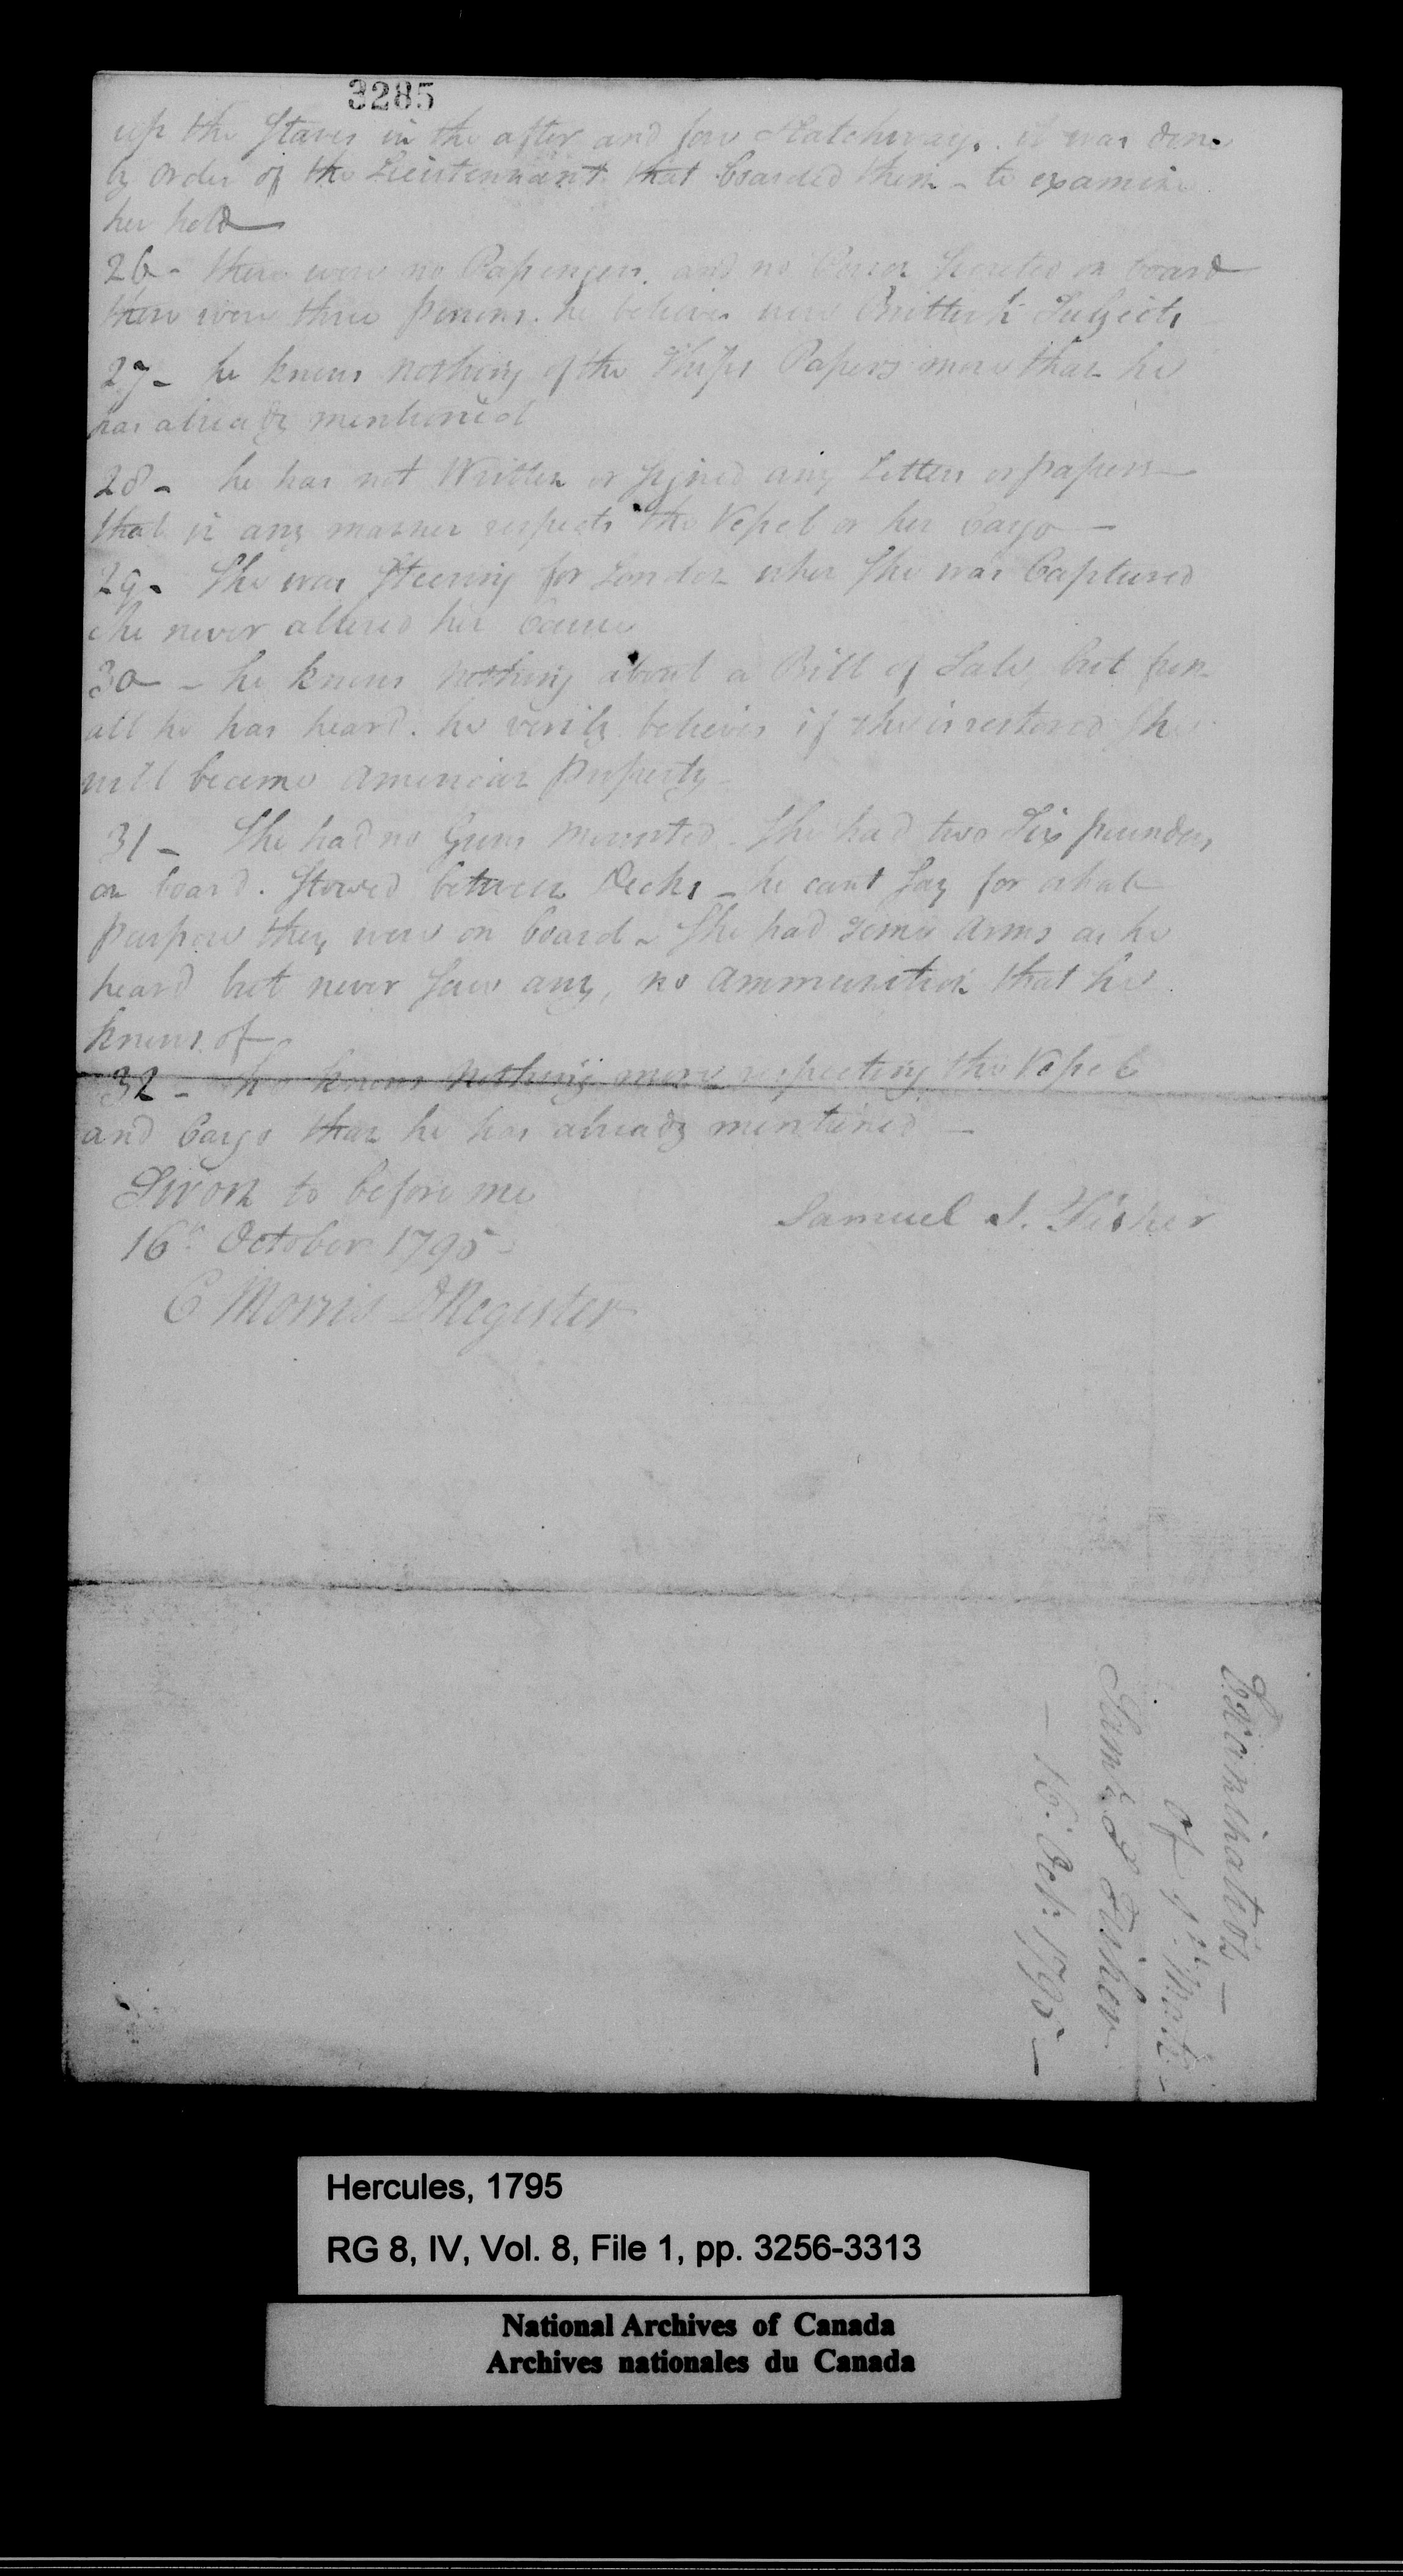 3285
up the Staves in the after and fore Hatchways. it was done
by order of the Lieutennant that boarded them - to examine
her hold
26 - there were no Passengers. and no Person Secreted on board
there were three persons. he believes were Brittish Subjects
27 - he knows nothing of the Ships Papers more than he
has already mentioned
28 - he has not Written or signed any Letters or papers
that in any manner respects the Vessel or her Cargo -
29 - She was Steering for London when She was Captured
She never altered her Course
30 - he knows nothing about a Bill of Sale, but from
all he has heard. he verily believes if she is restored She
will become American property -
31 - She had no Guns mounted - She had two Six pounders
on board. Stowed between Decks - he cant Say for what
purpose they were on board - She had some arms as he
heard but never Saw any, no ammunition that he
knows of
32 - he knows nothing more respecting the Vessel
and Cargo than he has already mentioned -
Sworn to before me
Samuel S. Fisher
16th October 1795 -
C Morris D Register
Examination -
of 1st Mate -
Saml. S Fisher
- 16. Octr. 1795 -
Hercules, 1795
RG 8, IV, Vol. 8, File 1, pp. 3256-3313
National Archives of Canada
Archives nationales du Canada